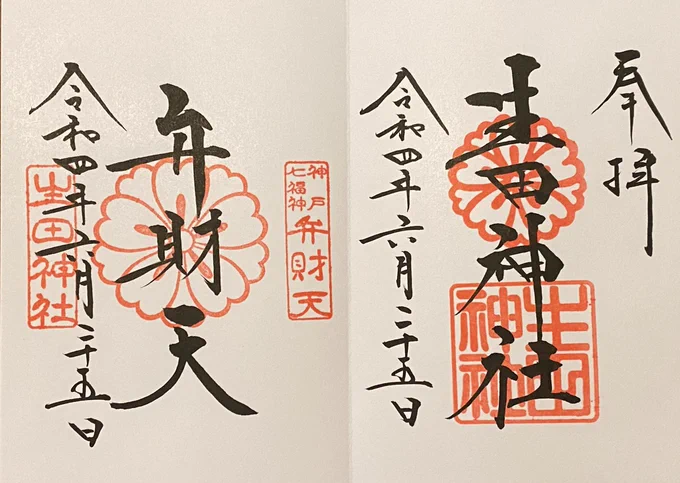 奉拝
生田神社
生田神社
令和四年六月二十五日
神戸七福神
弁財天
弁財天
令和四年六月二十五日
生田神社